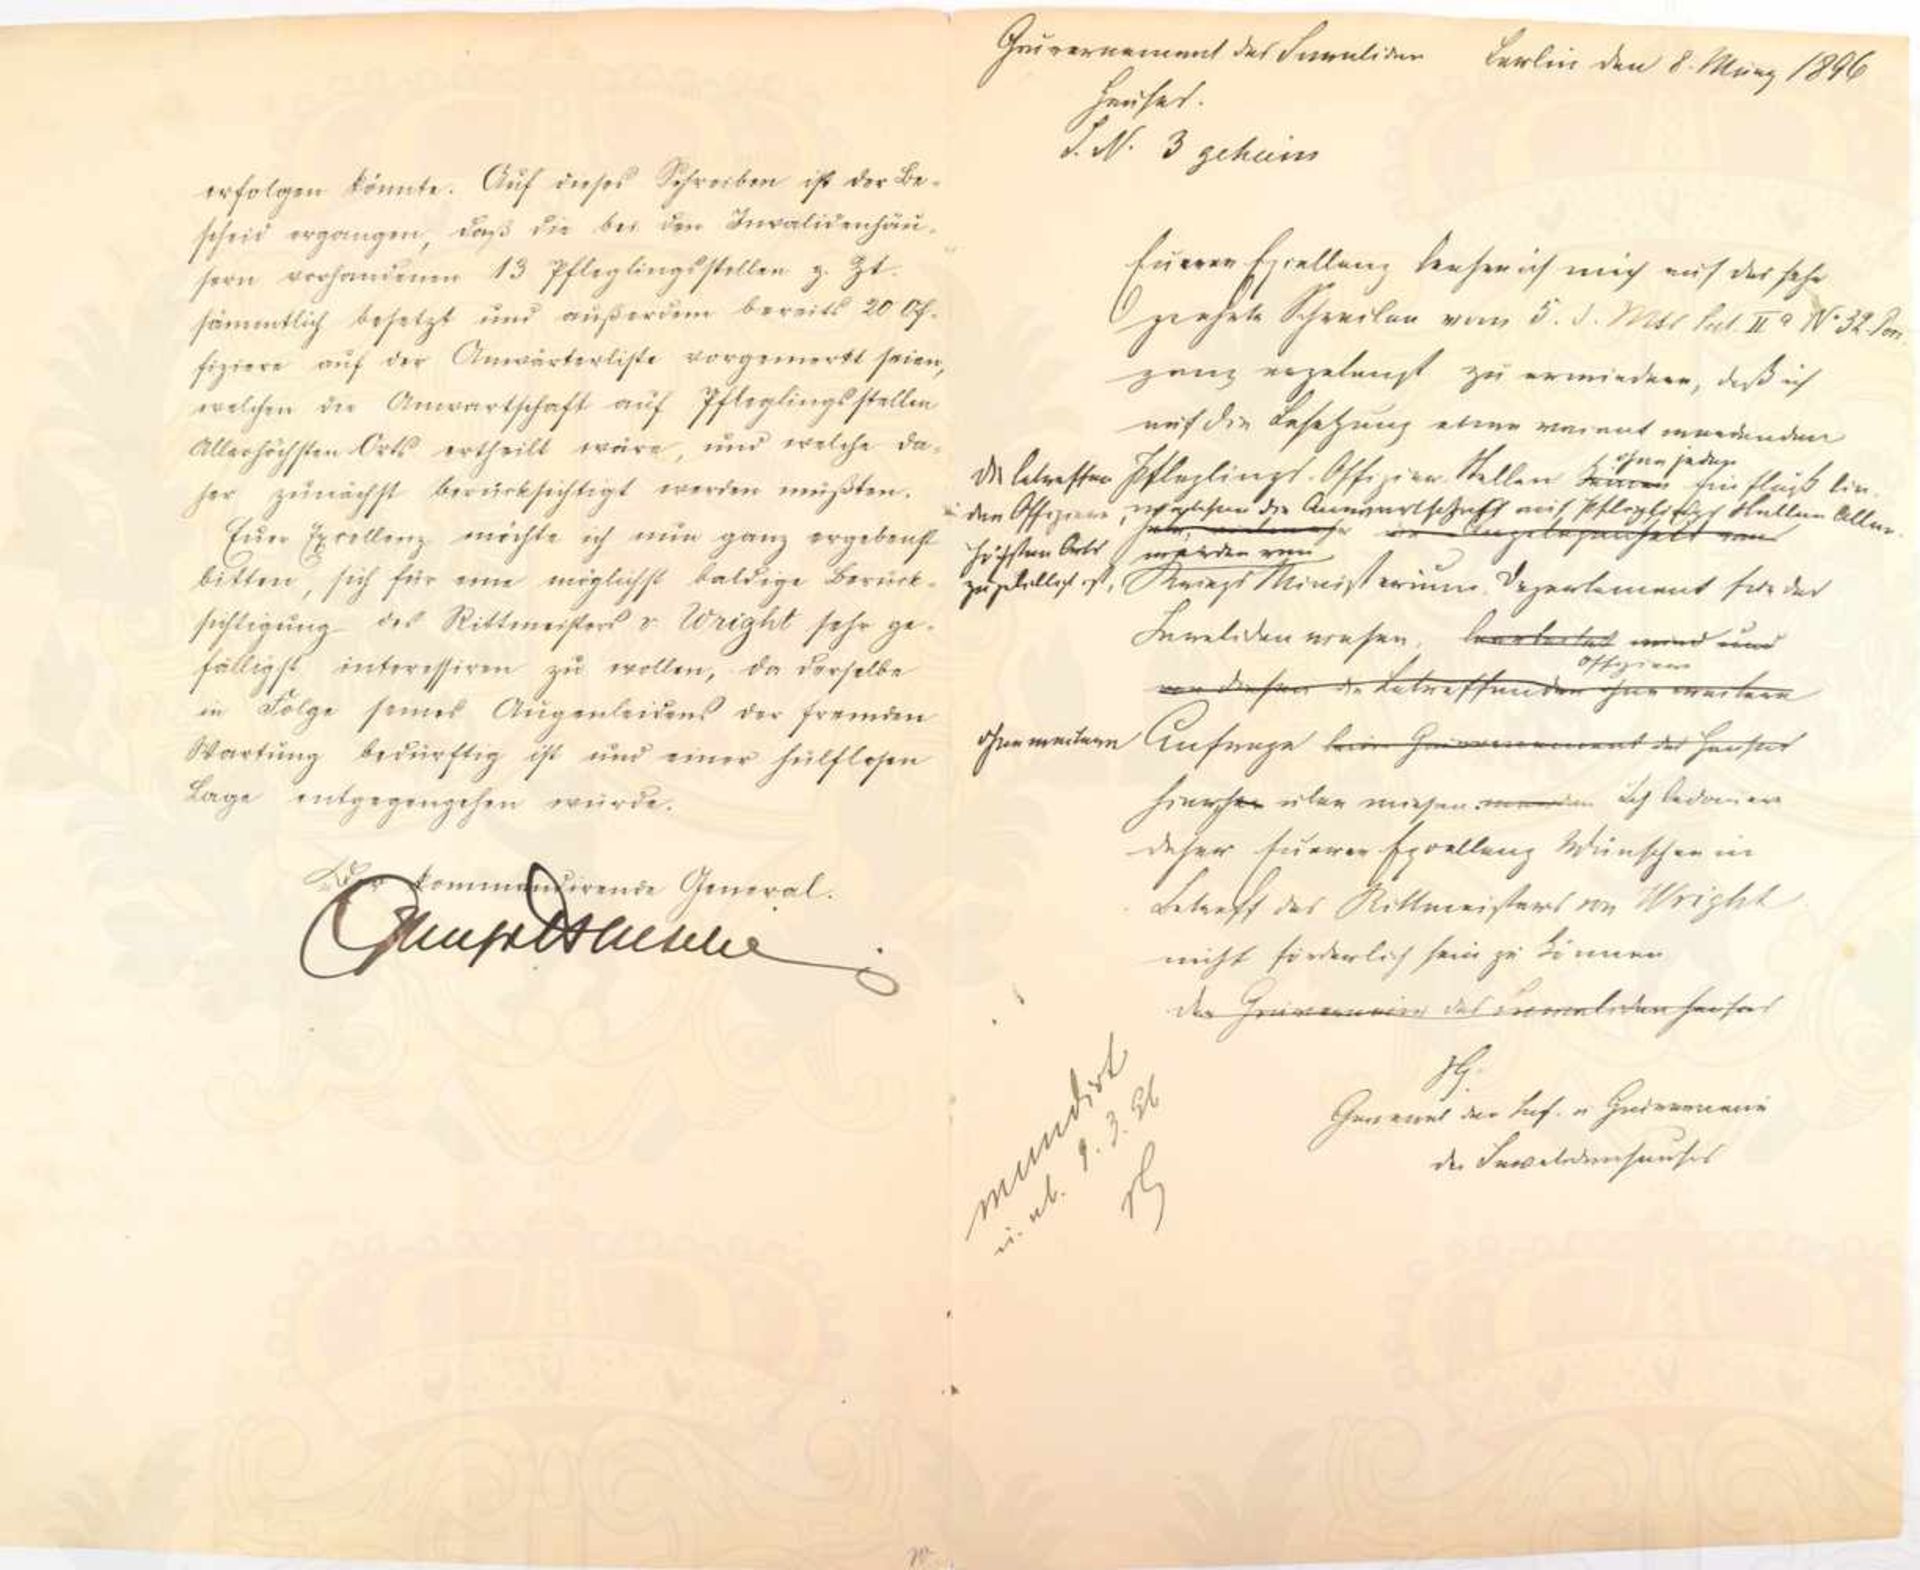 erfolgen könnte. Auf dieses Schreiben ist der Be-
scheid ergangen, daß die bei den Invalidenhäu-
sern vorhandenen 13 Pfleglingsstellen z. Zt.
sämmtlich besetzt und außerdem bereits 20 Of-
fiziere auf der Anwärterliste vorgemerkt seien,
welchen die Anwartschaft auf Pfleglingsstellen
Allerhöchsten Orts ertheilt wäre, und welche da-
her zunächst berücksichtigt werden müßten.
Euer Excellenz möchte ich nun ganz ergebenst
bitten, sich für eine möglichst baldige Berück-
sichtigung des Rittmeisters v. Wright sehr ge-
fälligst interessiren zu wollen, da derselbe
in Folge seines Augenleidens der fremden
Wartung bedürftig ist und einer hülflosen
Lage entgegengehen würde.
Der kommandirende General.
Gouvernement des Invaliden Berlin den 8. März 1896
Hauses.
J. N. 3 geheim
Euerer Excellenz beehre ich mich auf das sehr
geehrte Schreiben vom 5. d. Mts Sect. II a N. 32
ganz ergebenst zu erwiedern, daß ich
auf die Besetzung einer vacant werdenden
Pfleglings-Offizier-Stellen keinen ohne jeden Einfluß bin
die betreffen
den Offiziere, welchen die Anwartschaft auf Pfleglings Stellen Aller-
höchsten Orts
zugebilligt ist,
werden vom
Kriegs Ministerium Departement für das
Invalidenwesen, bearbeitet wird und
von diesem die betreffenden Offiziere ohne weitere
ohne weitere Anfrage beim Gouvernement des Hauses
hierher überwiesen werden. Ich bedauere
daher Euerer Excellenz Wünschen in
Betreff des Rittmeisters von Wright
nicht förderlich sein zu können
Der Gouverneur des Invalidenhauses
General der Inf. u Gouverneur
des Invalidenhauses
mundirt
u. ab. 9. 3. 96